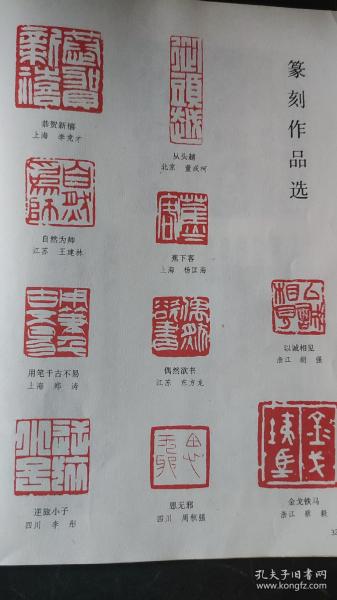 篆刻作品选
恭贺新禧
上海 李克才
从头越
北京 董成柯
自然为师
江苏 王建林
蕉下客
上海 杨江海
以诚相见
浙江 胡强
用笔千古不易
上海 郑涛
偶然欲书
江苏 东方龙
逆旅小子
四川 李彤
思无邪
四川 周根强
金戈铁马
浙江 蔡毅
32
孔夫子旧书网